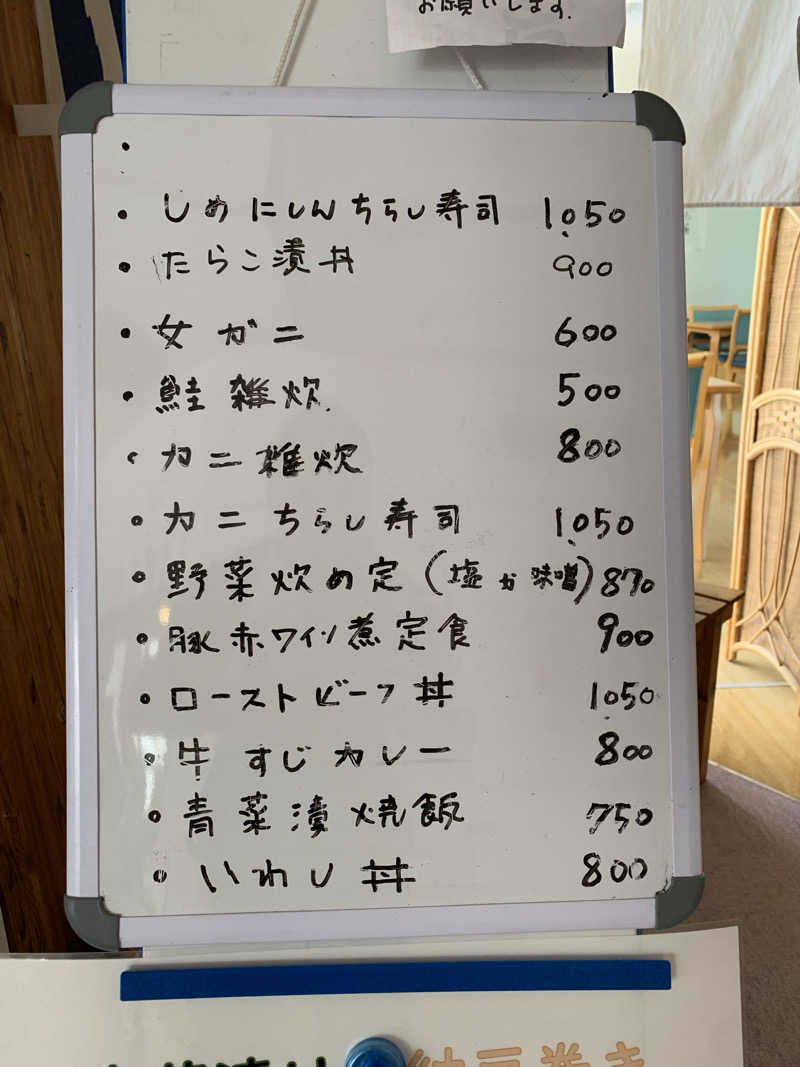 お願いします.
・
・しめにしんちらし寿司 1,050
・たらこ漬丼 900
・女ガニ 600
・鮭雑炊. 500
・カニ雑炊 800
・カニちらし寿司 1,050
・野菜炒め定(塩か味噌) 870
・豚赤ワイン煮定食 900
・ローストビーフ丼 1,050
・牛すじカレー 800
・青菜漬焼飯 750
・いわし丼 800
納豆巻き